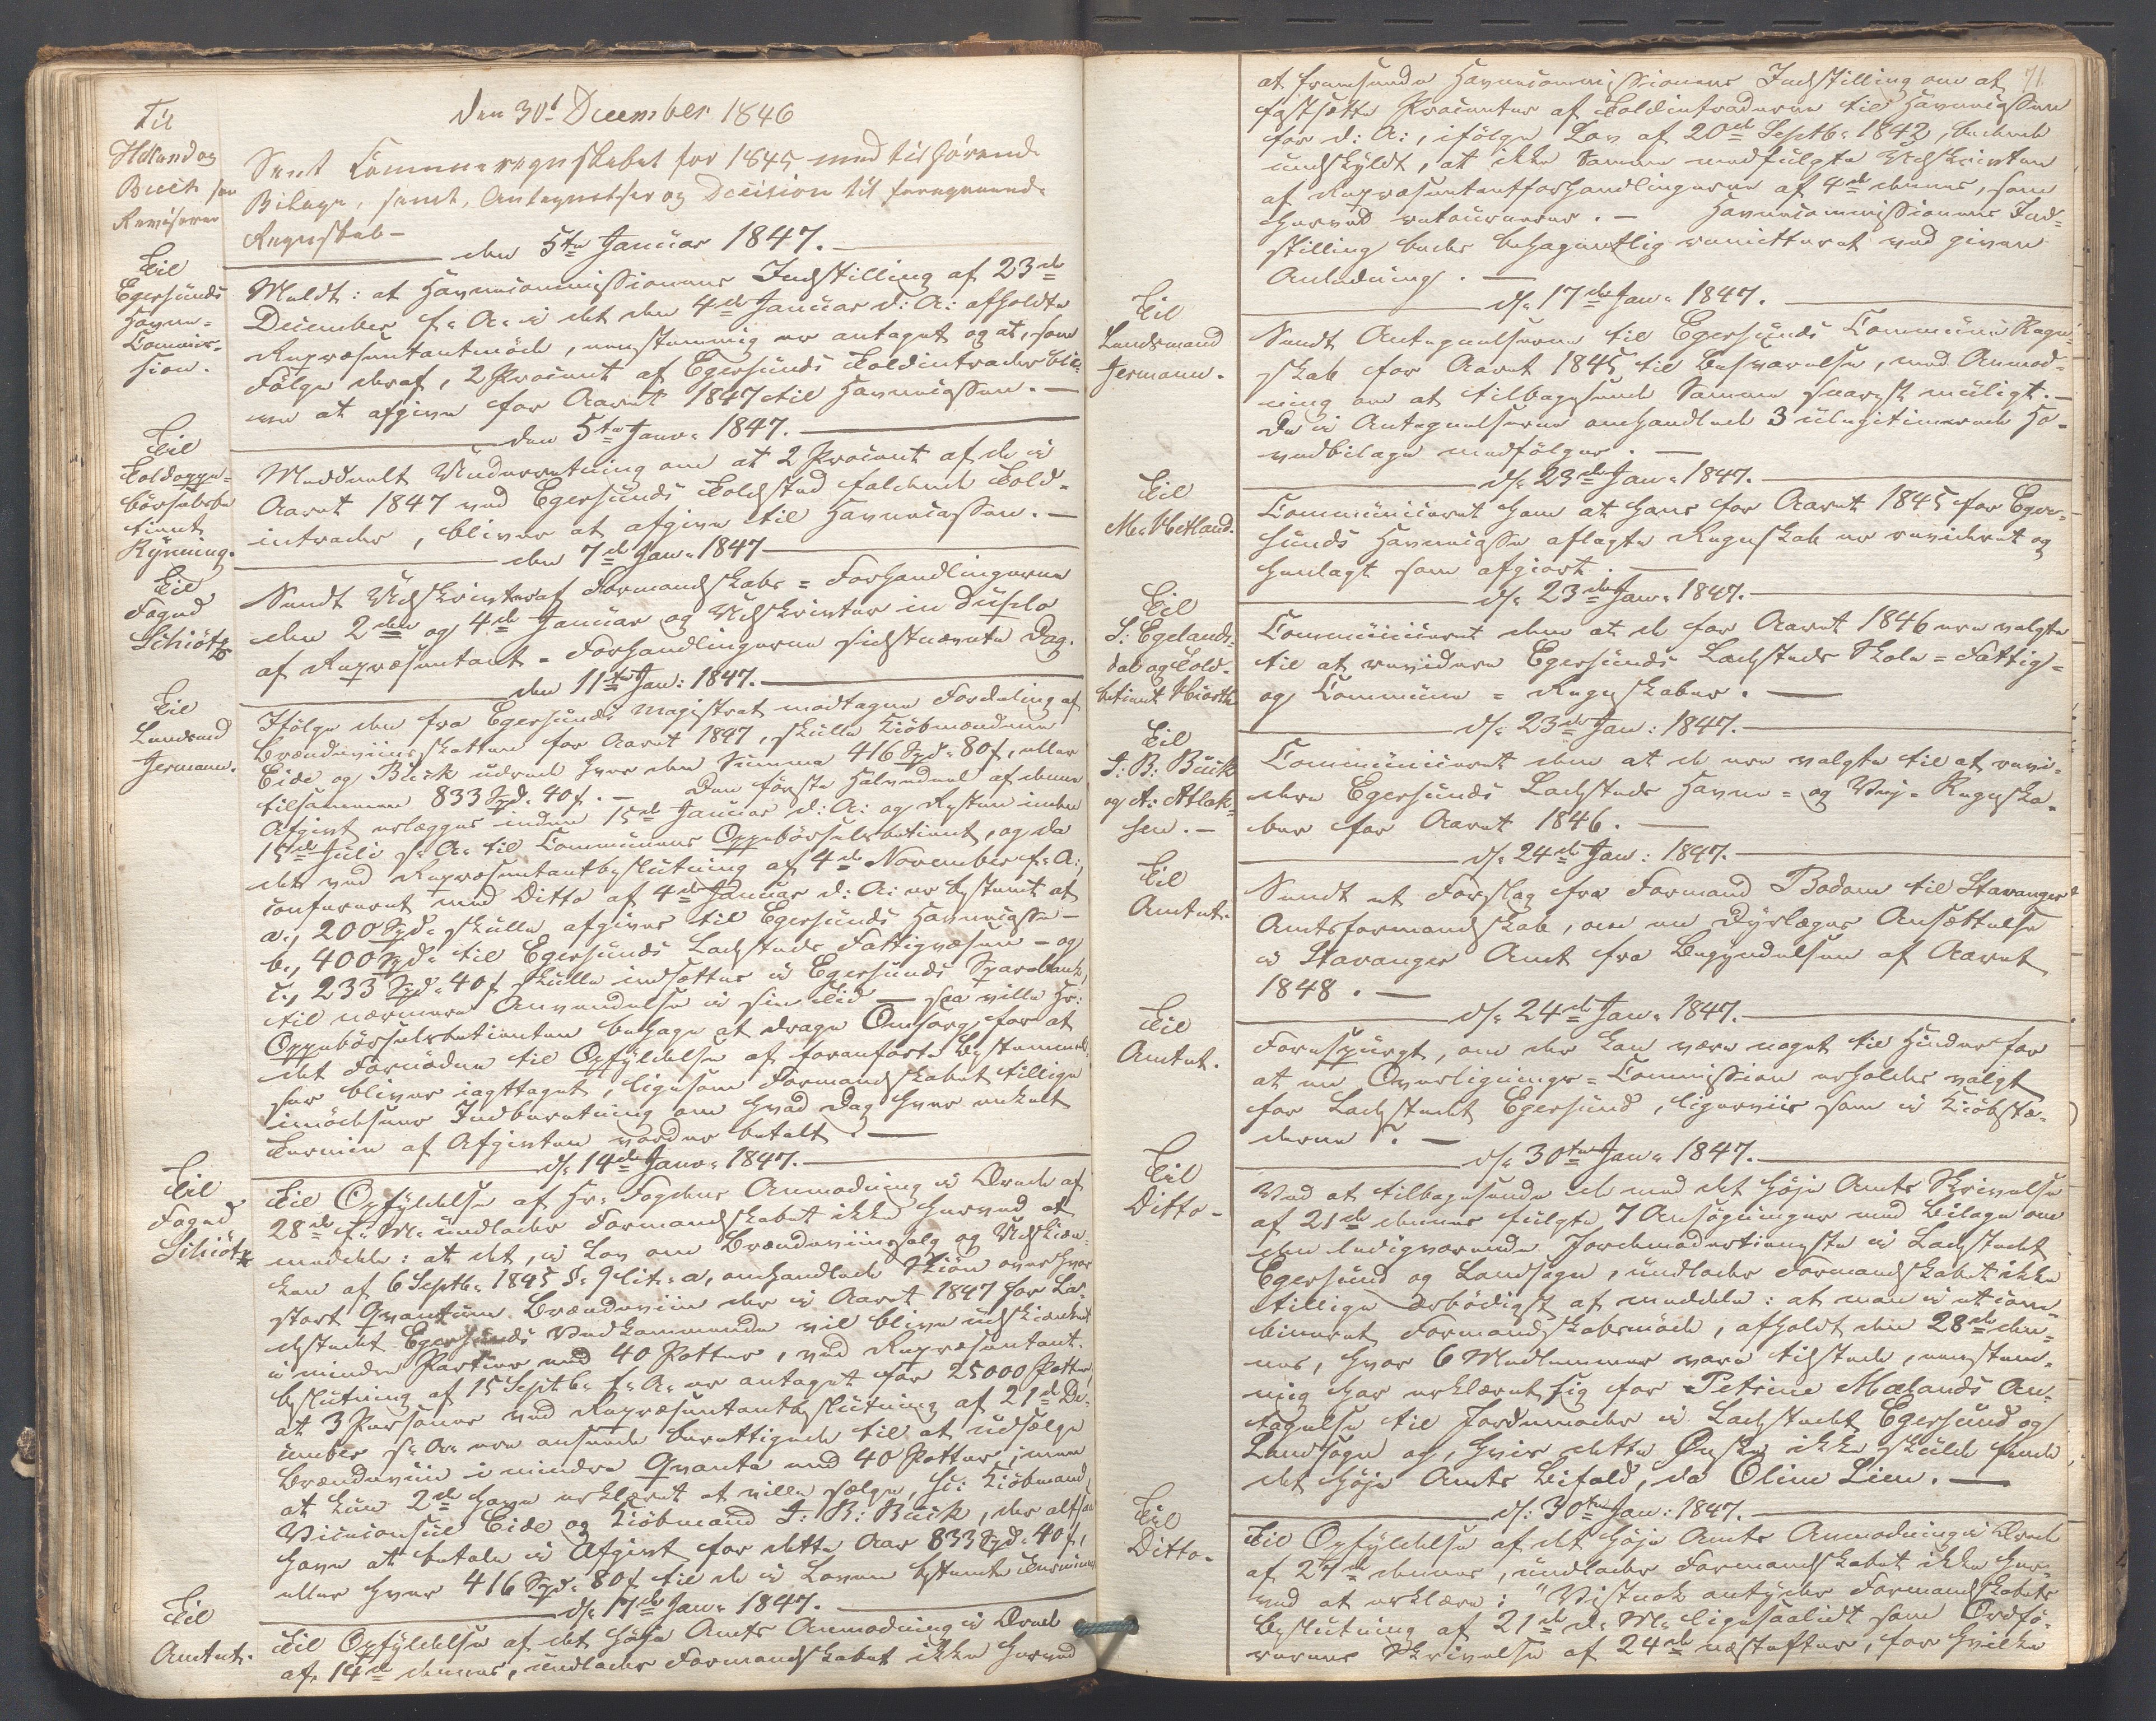 Den 30d December 1846
Til
Hetland og
Buch som
Revisorer
Sendt Communeregnskabet for 1845 med tilhørende
Bilage, samt, Antegnelser og Decision til foregaaende
Regnskab —
den 5te Januar 1847. —
Til
Egersunds
Havne-
Commis-
sion.
Meldt: at Havnecommissionens Indstilling af 23de
December f: A: i det den 4de Januar d: A: afholdte
Repræsentantmöde, eenstemmig er antaget og at, som
Fölge deraf, 2 Procent af Egersunds Toldintrader bli-
ve at afgive for Aaret 1847 til Havnecassen. —
den 5te Janr: 1847. —
Til
Toldoppe-
börselsbe
tient
Rÿnning.
Meddeelt Underretning om at 2 Procent af de i
Aaret 1847 ved Egersunds Toldsted faldende Told-
intrader, bliver at afgive til Havnecassen. —
den 7de Jan: 1847 —
Til
Foged
Schiötz
Sendt Udskrivter af Formandskabs-Forhandlingerne
den 2den og 4de Januar og Udskrivter in duplo
af Repræsentant-Forhandlingerne sidstnævnte Dag.
den 11te Jan: 1847. —
Til
Lensmd
Jermann.
Ifölge den fra Egersunds Magistrat modtagne Fordeling af
Brændeviinsskatten for Aaret 1847, skulle Kiöbmændene
Eide og Buch udrede hver den Summa 416 Spd: 80 s, eller
tilsammen 833 Spd: 40 s. — Den förste Halvdeel af denne
Afgivt erlægges inden 15de Januar d: A: og Resten inden
15de Juli s: A: til Communens Oppebörselsbetient, og da
det ved Repræsentantbeslutning af 4de November f: A:,
confereret med Ditto af 4de Januar d: A: er bestemt at
a., 200 Spd: skulle afgives til Egersunds Havnecasse —
b., 400 Spd: til Egersunds Ladesteds Fattigvæsen — og
c., 233 Spd: 40 s skulle indsættes i Egersunds Sparebank,
til nærmere Anvendelse i sin Tid — saa ville Hr:
Oppebörselsbetienten behage at drage Omsorg for at
det Fornödne til Opfÿldelse af foranförte Bestemmel-
ser bliver iagttaget, ligesom Formandskabet tillige
imödeseer Indberetning om hvad Dag hver enkelt
Termin af Afgivten vorder betalt. —
d: 14de Janr: 1847. —
Til
Foged
Schiötz
Til Opfÿldelse af Hr: Fogdens Anmodning i Brev af
28de f: M: undlader Formandskabet ikke herved at
meddele: at det, i Lov om Brændeviinssalg og Udskiæn-
ken af 6 Septb: 1845 §: 9 lit: a, omhandlede Skiön over hvor
stort Qvantum Brændeviin der i Aaret 1847 for La-
destedet Egersunds Vedkommende vil blive udskienket
i mindre Partier end 40 Potter, ved Repræsentant-
beslutning af 15 Septb: f: A: er antaget for 25000 Potter,
at 3 Personer ved Repræsentantbeslutning af 21de De-
cember f: A: ere ansende berettigede til at udsælge
Brændeviin i mindre Qvanta end 40 Potter; men
at kun 2de have erklæret at ville sælge, sc: Kiöbmand,
Viceconsul Eide og Kiöbmand J: B: Buch, der altsaa
have at betale i Afgivt for dette Aar 833 Spd: 40 s,
eller hver 416 Spd: 80 s til de i Loven bestemte Terminer
d: 17de Jan: 1847. —
Til
Amtet.
Til Opfÿldelse af det höje Amts Anmodning i Brev
af 14de dennes, undlader Formandskabet ikke herved
71
at fremsende Havnecommissionens Indstilling om at
fastsætte Procenter af Toldintraderne til Havnecassen
for d: A:, ifölge Lov af 20de Septb: 1842, bedende
undskÿldt, at ikke Samme medfulgte Udskrivten
af Repræsentantforhandlingerne af 4de dennes, som
herved retourneres. — Havnecommissionens Ind-
stilling bedes behageligst remitteret ved given
Anledning. —
d: 17de Jan: 1847. —
Til
Lensmand
Jermann.
Sendt Antegnelserne til Egersunds Commune Regn-
skab for Aaret 1845 til Besvarelse, med Anmod-
ning om at tilbagesende Samme snarest muligt. —
De i Antegnelserne omhandlede 3 ulegitimerede Ho-
vedbilage medfölger. —
d: 23de Jan: 1847. —
Til
M. Hetland.
Communiceret ham at hans for Aaret 1845 for Eger-
sunds Havnecasse aflagte Regnskab er revideret og
henlagt som afgiort. —
d: 23de Jan: 1847. —
Til
S: Egelands-
dal og Told-
betient Hiorth
Communiceret dem at de for Aaret 1846 ere valgte
til at revidere Egersunds Ladesteds Skole-Fattig-
og Commune-Regnskaber. —
d: 23de Jan: 1847. —
Til
J: B: Buch
og A: Atlak-
sen. —
Communiceret dem at de ere valgte til at revi-
dere Egersunds Ladesteds Havne- og Vej-Regnska-
ber for Aaret 1846. —
d: 24de Jan: 1847. —
Til
Amtet.
Sendt et Forslag fra Formand Bodom til Stavanger
Amtsformandskab, om en Dÿrlæges Ansættelse
i Stavanger Amt fra Begÿndelsen af Aaret
1848. —
d: 24de Jan: 1847. —
Til
Amtet.
Forespurgt, om der kan være noget til Hinder for
at en Overlignings-Commission erholdes valgt
for Ladestedet Egersund, ligerviis som i Kiöbstæ-
derne? —
d: 30te Jan: 1847. —
Til
Ditto-
Ved at tilbagesende de med det höje Amts Skrivelse
af 21de dennes fulgte 7 Ansögninger med Bilage om
den ledigværende Jordemodertieneste i Ladestedet
Egersund og Landsogn, undlader Formandskabet ikke
tillige ærbödigst at meddele: at man i et com-
bineret Formandskabsmöde, afholdt den 28de den-
nes, hvor 6 Medlemmer vare tilstede, eenstem-
mig har erklæret sig for Petrine Mælands An-
tagelse til Jordemoder i Ladestedet Egersund og
Landsogn og, hvis dette Ønske ikke skulde finde
det höje Amts Bifald, da Oline Lien. —
d: 30te Jan: 1847. —
Til
Ditto-
Til Opfÿldelse af det höje Amts Anmodning i Brev
af 27de dennes, undlader Formandskabet ikke her-
ved at erklære: "Vistnok antÿder Formandskabets
Beslutning af 21de d: M: ligesaalidt som Ordfö-
rerens Skrivelse af 24de næstefter, for hvilke